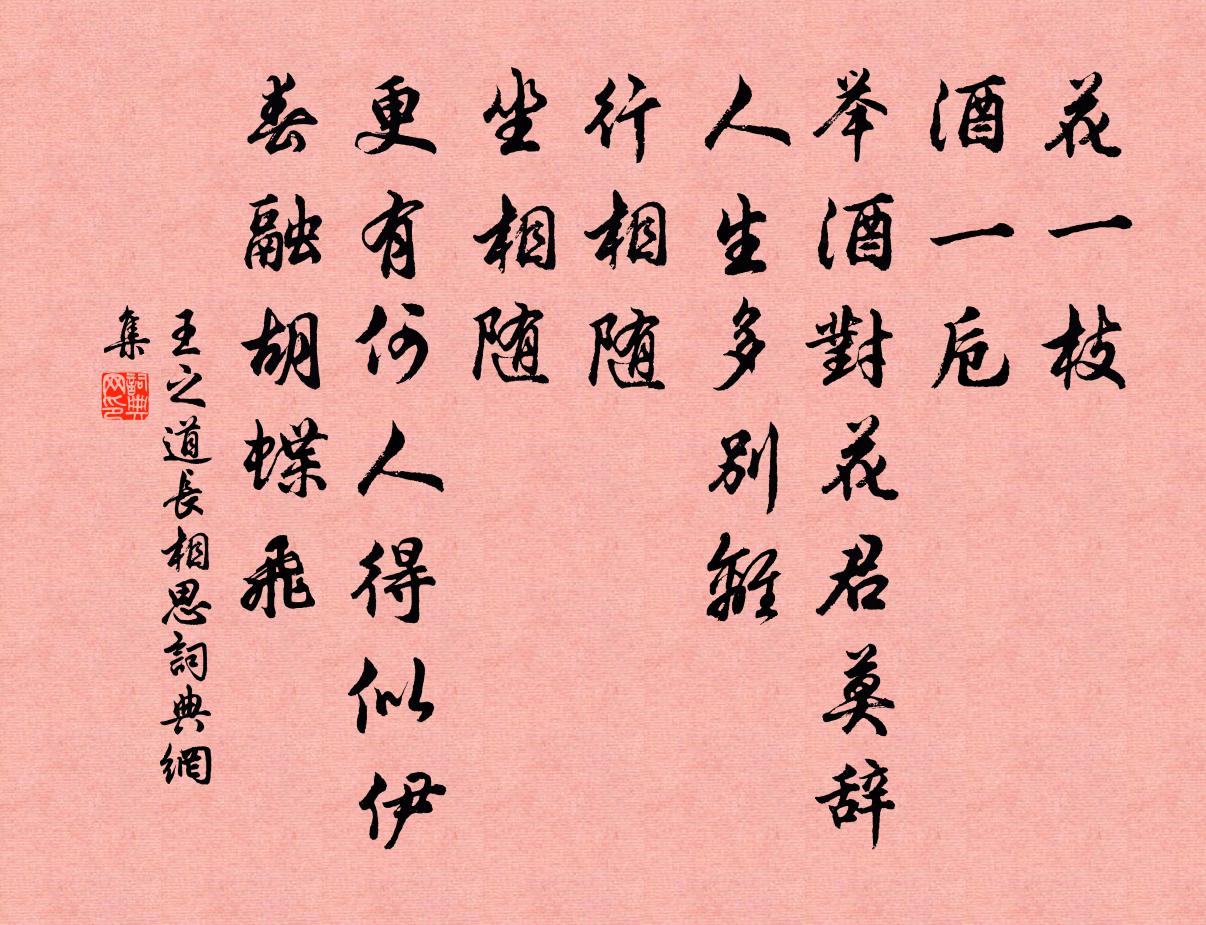 花一枝
酒一卮
举酒對花君莫辞
人生多別離
行相随
坐相随
更有何人得似伊
春融胡蝶飛
王之道長相思詞典網
集
詞典
网印